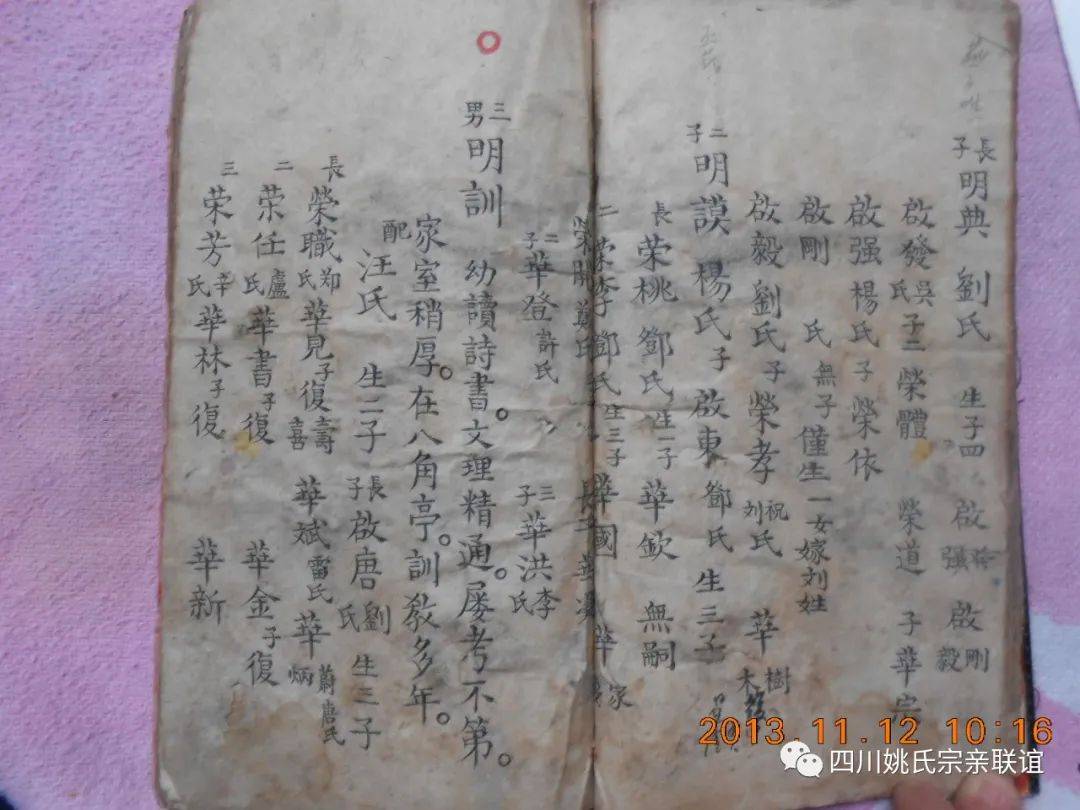 長子明典 劉氏 生子四 啟強 啟剛毅
啟發吳氏子二榮體 榮道 子華宗
啟强楊氏子榮依
啟剛 氏無子僅生一女嫁刘姓
啟毅劉氏子榮孝祝刘氏 華樹木
二子明謨楊氏子啟東鄧氏 生三子
長荣桃鄧氏生一子 華欽 無嗣
二荣李鄧氏生三子 國 華
二子華登許氏 三子華洪李氏
三男明訓 幼讀詩書。文理精通。屡考不第。
家室稍厚。在八角亭。訓教多年。
配汪氏 生二子 長子啟唐劉氏 生三子
長榮職郑氏華見子復壽喜 華斌雷氏 華蔚炳唐氏
二荣任盧氏華書子復 華金子復
三荣芳辛氏華林子復 華新
2013.11.12 10:16
四川姚氏宗亲联谊